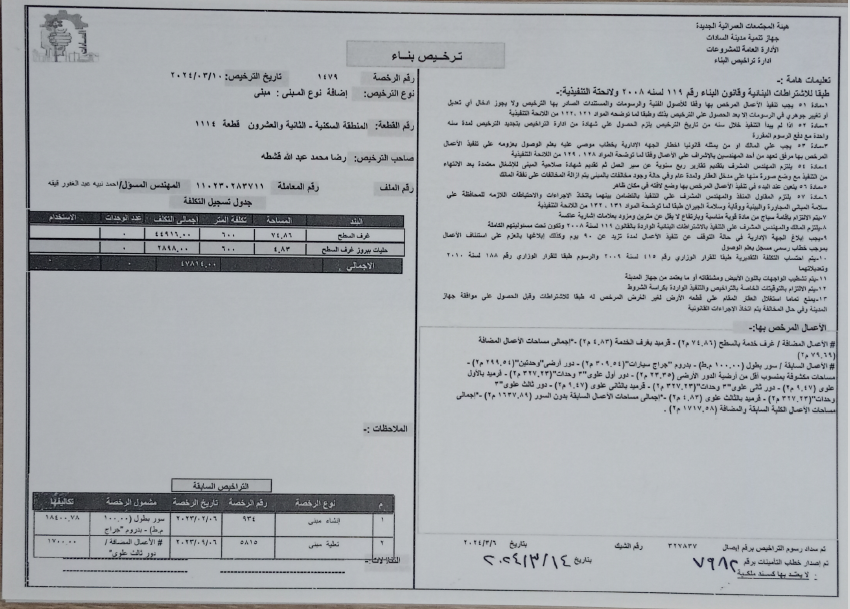 هيئة المجتمعات العمرانية الجديدة
جهاز تنمية مدينة السادات
الأدارة العامة للمشروعات
ادارة تراخيص البناء
ترخيص بناء
رقم الرخصة ١٤٧٩ تاريخ الترخيص: ٢٠٢٤/٠٣/١٠
نوع الترخيص: إضافة نوع المبنى: مبنى
رقم القطعة: المنطقة السكنية - الثانية والعشرون قطعة ١١١٤
صاحب الترخيص: رضا محمد عبد الله قشطه
رقم الملف رقم المعاملة ١١٠٢٣٠٢٨٣٧١١ المهندس المسؤل/احمد نبيه عبد الغفور فيقه
جدول تسجيل التكلفة
البند المساحة تكلفة المتر إجمالي التكلفة عدد الوحدات الاستخدام
غرف السطح ٧٤,٨٦ ٦٠٠ ٤٤٩١٦,٠٠ ٠
حليات ببروز غرف السطح ٤,٨٣ ٦٠٠ ٢٨٩٨,٠٠ ٠
الاجمالي ٤٧٨١٤,٠٠
الملاحظات :-
التراخيص السابقة
م نوع الرخصة رقم الرخصة تاريخ الرخصة مشمول الرخصة تكاليفها
١ إنشاء مبنى ٩٣٤ ٢٠٢٣/٠٢/٠٦ سور بطول (١٠٠,٠٠ م.ط) - بدروم "جراج ١٨٤٠٠,٧٨
٢ تعلية مبنى ٥٨١٥ ٢٠٢٣/٠٩/٠٦ # الأعمال المضافة / دور ثالث علوى" ١٧٠٠,٠٠
التنازلات:-
تعليمات هامة :-
طبقا للاشتراطات البنائية وقانون البناء رقم ١١٩ لسنه ٢٠٠٨ ولانحتة التنفيذية:-
١-مادة ٥١ يجب تنفيذ الأعمال المرخص بها وفقا للأصول الفنية والرسومات والمستندات الصادر بها الترخيص ولا يجوز ادخال أي تعديل
أو تغيير جوهري في الرسومات الا بعد الحصول علي الترخيص بذلك وطبقا لما توضحه المواد ١٢١، ١٢٢ من اللائحة التنفيذية
٢-مادة ٥٢ اذا لم يبدأ التنفيذ خلال سنه من تاريخ الترخيص يلزم الحصول علي شهادة من ادارة التراخيص بتجديد الترخيص لمدة سنه
واحدة مع دفع الرسوم المقررة
٣-مادة ٥٣ يجب علي المالك او من يمثله قانونيا اخطار الجهه الإدارية بخطاب موصي عليه بعلم الوصول بعزومه علي تنفيذ الأعمال
المرخص بها مرفق تعهد من أحد المهندسين بالإشراف علي الأعمال وفقا لما توضحة المواد ١٢٨، ١٢٩ من اللائحة التنفيذية
٤-مادة ٥٤ يلتزم المهندس المشرف بتقديم تقارير ربع سنوية عن سير العمل ثم تقديم شهادة صلاحية المبني للإشغال معتمدة بعد الانتهاء
من التنفيذ مع وضع صورة منها علي مدخل العقار ولمدة عام وفي حالة وجود مخالفات بالمبني يتم ازالة المخالفات علي نفقة المالك
٥-مادة ٥٦ يتعين عند البدء في تنفيذ الأعمال المرخص بها وضع لافته في مكان ظاهر
٦-مادة ٥٧ يلتزم المقاول المنفذ والمهندس المشرف علي التنفيذ بالتضامن بينهما باتخاذ الإجراءات والاحتياطات اللازمه للمحافظة علي
سلامة المباني المجاورة والبيئة ووقاية وسلامة الجيران طبقا لما توضحة المواد ١٣١، ١٣٢ من اللائحة التنفيذية
٧-يتم الالتزام بإقامة سياج من مادة قوية مناسبة وبارتفاع لا يقل عن مترين ومزود بعلامات إشارية عاكسة
٨-يلتزم المالك والمهندس المشرف علي التنفيذ بالاشتراطات البنائية الواردة بالقانون ١١٩ لسنة ٢٠٠٨ وتكون تحت مسئوليتهم الكاملة
٩-يجب ابلاغ الجهة الإدارية في حالة التوقف عن تنفيذ الأعمال لمدة تزيد عن ٩٠ يوم وكذلك إبلاغها بالعزم علي استئناف الأعمال
بموجب خطاب رسمي مسجل بعلم الوصول
١٠-يتم احتساب التكلفة التقديرية طبقا للقرار الوزاري رقم ٤١٥ لسنة ٢٠٠٩ والرسوم طبقا للقرار الوزاري رقم ١٨٨ لسنة ٢٠١٠
وتعديلاتهما
١١-يتم تشطيب الواجهات بللون الأبيض ومشتقاته أو ما يعتمد من جهاز المدينة
١٢-يتم الالتزام بالتوقيتات الخاصة بالتراخيص والتنفيذ الواردة بكراسة الشروط
١٣-يمنع تماما استغلال العقار المقام علي قطعه الأرض لغير الغرض المرخص له طبقا للاشتراطات وقبل الحصول علي موافقة جهاز
المدينة وفي حال المخالفة يتم اتخاذ الاجراءات القانونية
الأعمال المرخص بها:-
# الأعمال المضافة / غرف خدمة بالسطح (٧٤,٨٦ م٢) - قرميد بغرف الخدمة (٤,٨٣ م٢) -*إجمالى مساحات الأعمال المضافة
(٧٩,٦٩ م٢)
# الأعمال السابقة / سور بطول (١٠٠,٠٠ م.ط) - بدروم "جراج سيارات"(٣٠٩,٥٤ م٢) - دور أرضى"وحدتين"(٢٩٩,٥٤ م٢) -
مساحات مكشوفة بمنسوب أقل من أرضية الدور الأرضى (٢٣,٣٥ م٢) - دور أول علوى"٣ وحدات"(٣٢٧,٢٣ م٢) - قرميد بالأول
علوى (٩,٤٧ م٢) - دور ثانى علوى"٣ وحدات"(٣٢٧,٢٣ م٢) - قرميد بالثانى علوى (٩,٤٧ م٢) - دور ثالث علوى"٣
وحدات"(٣٢٧,٢٣ م٢) - قرميد بالثالث علوى (٤,٨٣ م٢) -*إجمالى مساحات الأعمال السابقة بدون السور (١٦٣٧,٨٩ م٢) -*إجمالى
مساحات الأعمال الكلية السابقة والمضافة (١٧١٧,٥٨ م٢) .
تم سداد رسوم التراخيص برقم إيصال ٣٢٧٨٣٧ رقم الشيك بتاريخ ٢٠٢٤/٣/٦
تم إصدار خطاب التأمينات برقم ٧٩٨٢ بتاريخ ٢٠٢٤/٣/١٤
- لا يعتد بها كسند ملكية